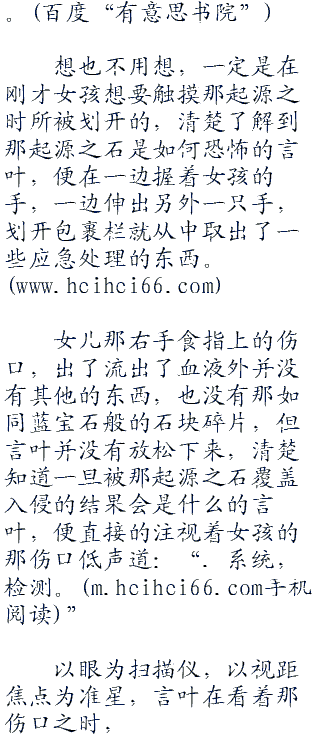 。(百度“有意思书院”)
想也不用想，一定是在
刚才女孩想要触摸那起源之
时所被划开的，清楚了解到
那起源之石是如何恐怖的言
叶，便在一边握着女孩的
手，一边伸出另外一只手，
划开包裹栏就从中取出了一
些应急处理的东西。
(www.hcihci66.com)
女儿那右手食指上的伤
口，出了流出了血液外并没
有其他的东西，也没有那如
同蓝宝石般的石块碎片，但
言叶并没有放松下来，清楚
知道一旦被那起源之石覆盖
入侵的结果会是什么的言
叶，便直接的注视着女孩的
那伤口低声道：“．系统，
检测。(m.hcihci66.com手机
阅读)”
以眼为扫描仪，以视距
焦点为准星，言叶在看着那
伤口之时，